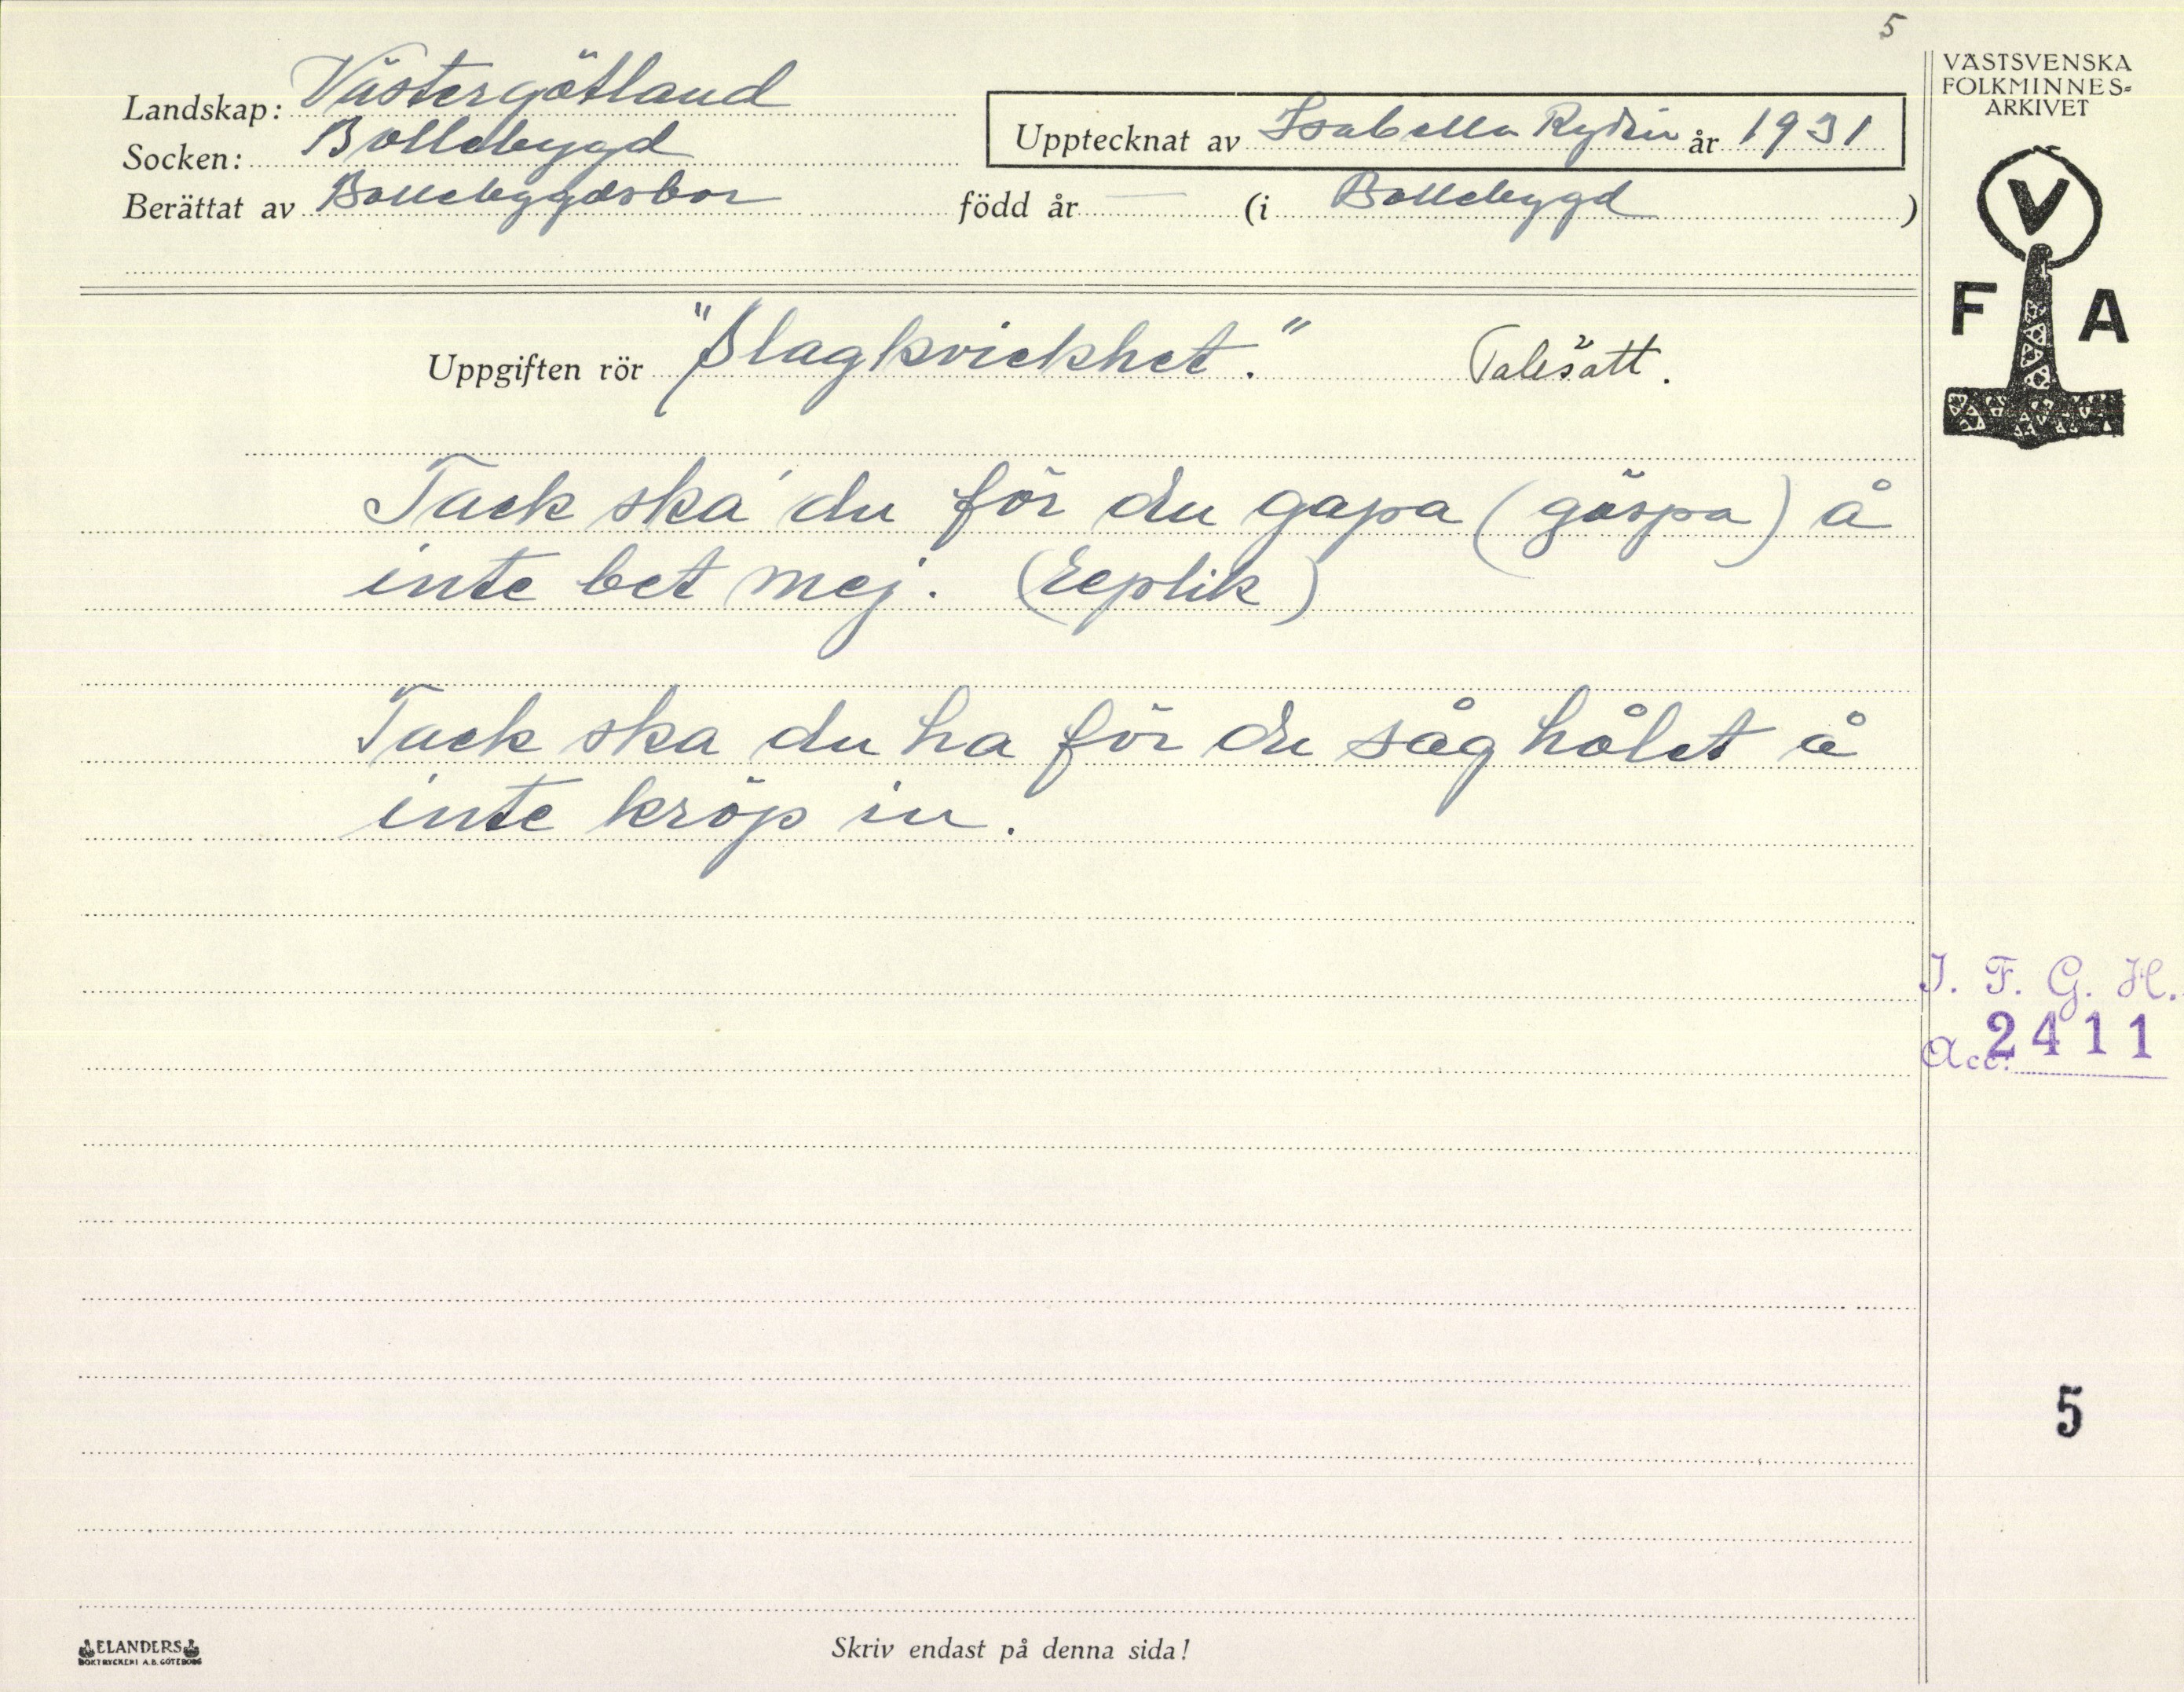 5
VÄSTSVENSKA
FOLKMINNES-
ARKIVET
Landskap: Västergötland
Socken: Bollebygd
Upptecknat av Isabella Rydén år 1931
Berättat av Bollebygdsbor född år — (i Bollebygd)
V
F A
Uppgiften rör "Slagkvickhet." Talesätt.
Tack ska' du för du gapa (gäspa) å
inte bet mej. (Replik)
Tack ska du ha för du såg hålet å
inte kröp in.
I. F. G. H.
Acc. 2411
5
ELANDERS
BOKTRYCKERI A.B. GÖTEBORG
Skriv endast på denna sida!